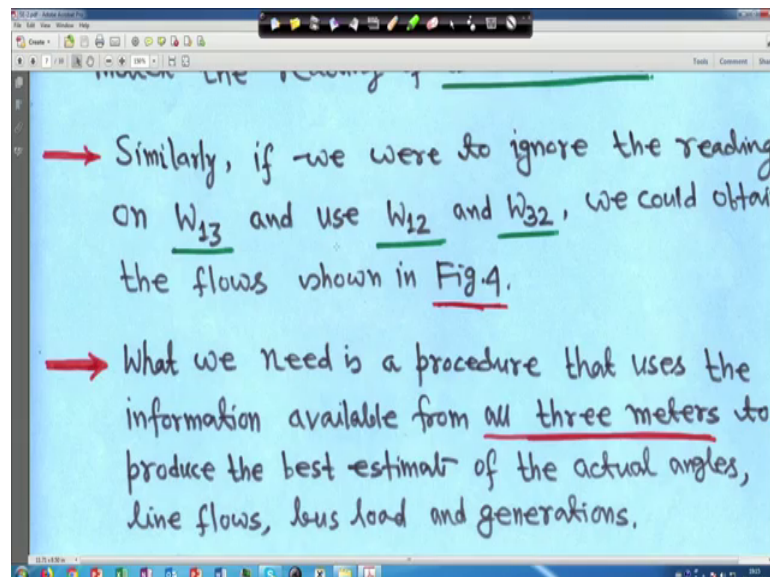 LSE-2.pdf - Adobe Acrobat Pro
File Edit View Window Help
Create
7 150%
Tools Comment
the reading of
→ Similarly, if we were to ignore the reading
on W13 and use W12 and W32, we could obtai
the flows shown in Fig.4.
→ What we need is a procedure that uses the
information available from all three meters to
produce the best estimat of the actual angles,
line flows, bus load and generations.